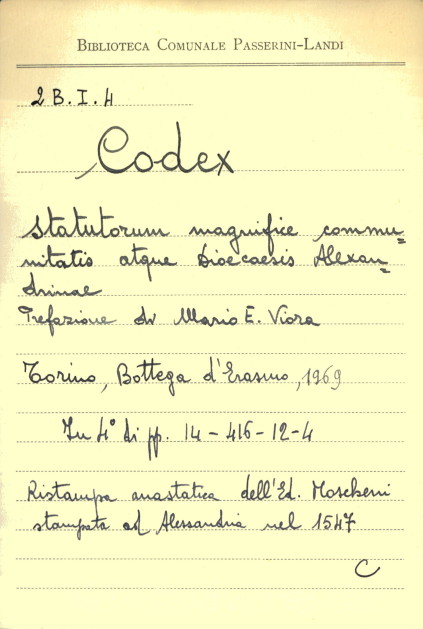 BIBLIOTECA COMUNALE PASSERINI-LANDI
2 B. I. 4
Codex
statutorum magnifice commu=
nitatis atque dioecaesis Alexan=
drinae
Prefazione di Mario E. Viora
Torino, Bottega d'Erasmo, 1969
In 4° di pp. 14-416-12-4
Ristampa anastatica dell'Ed. Moscheni
stampata ad Alessandria nel 1547
C